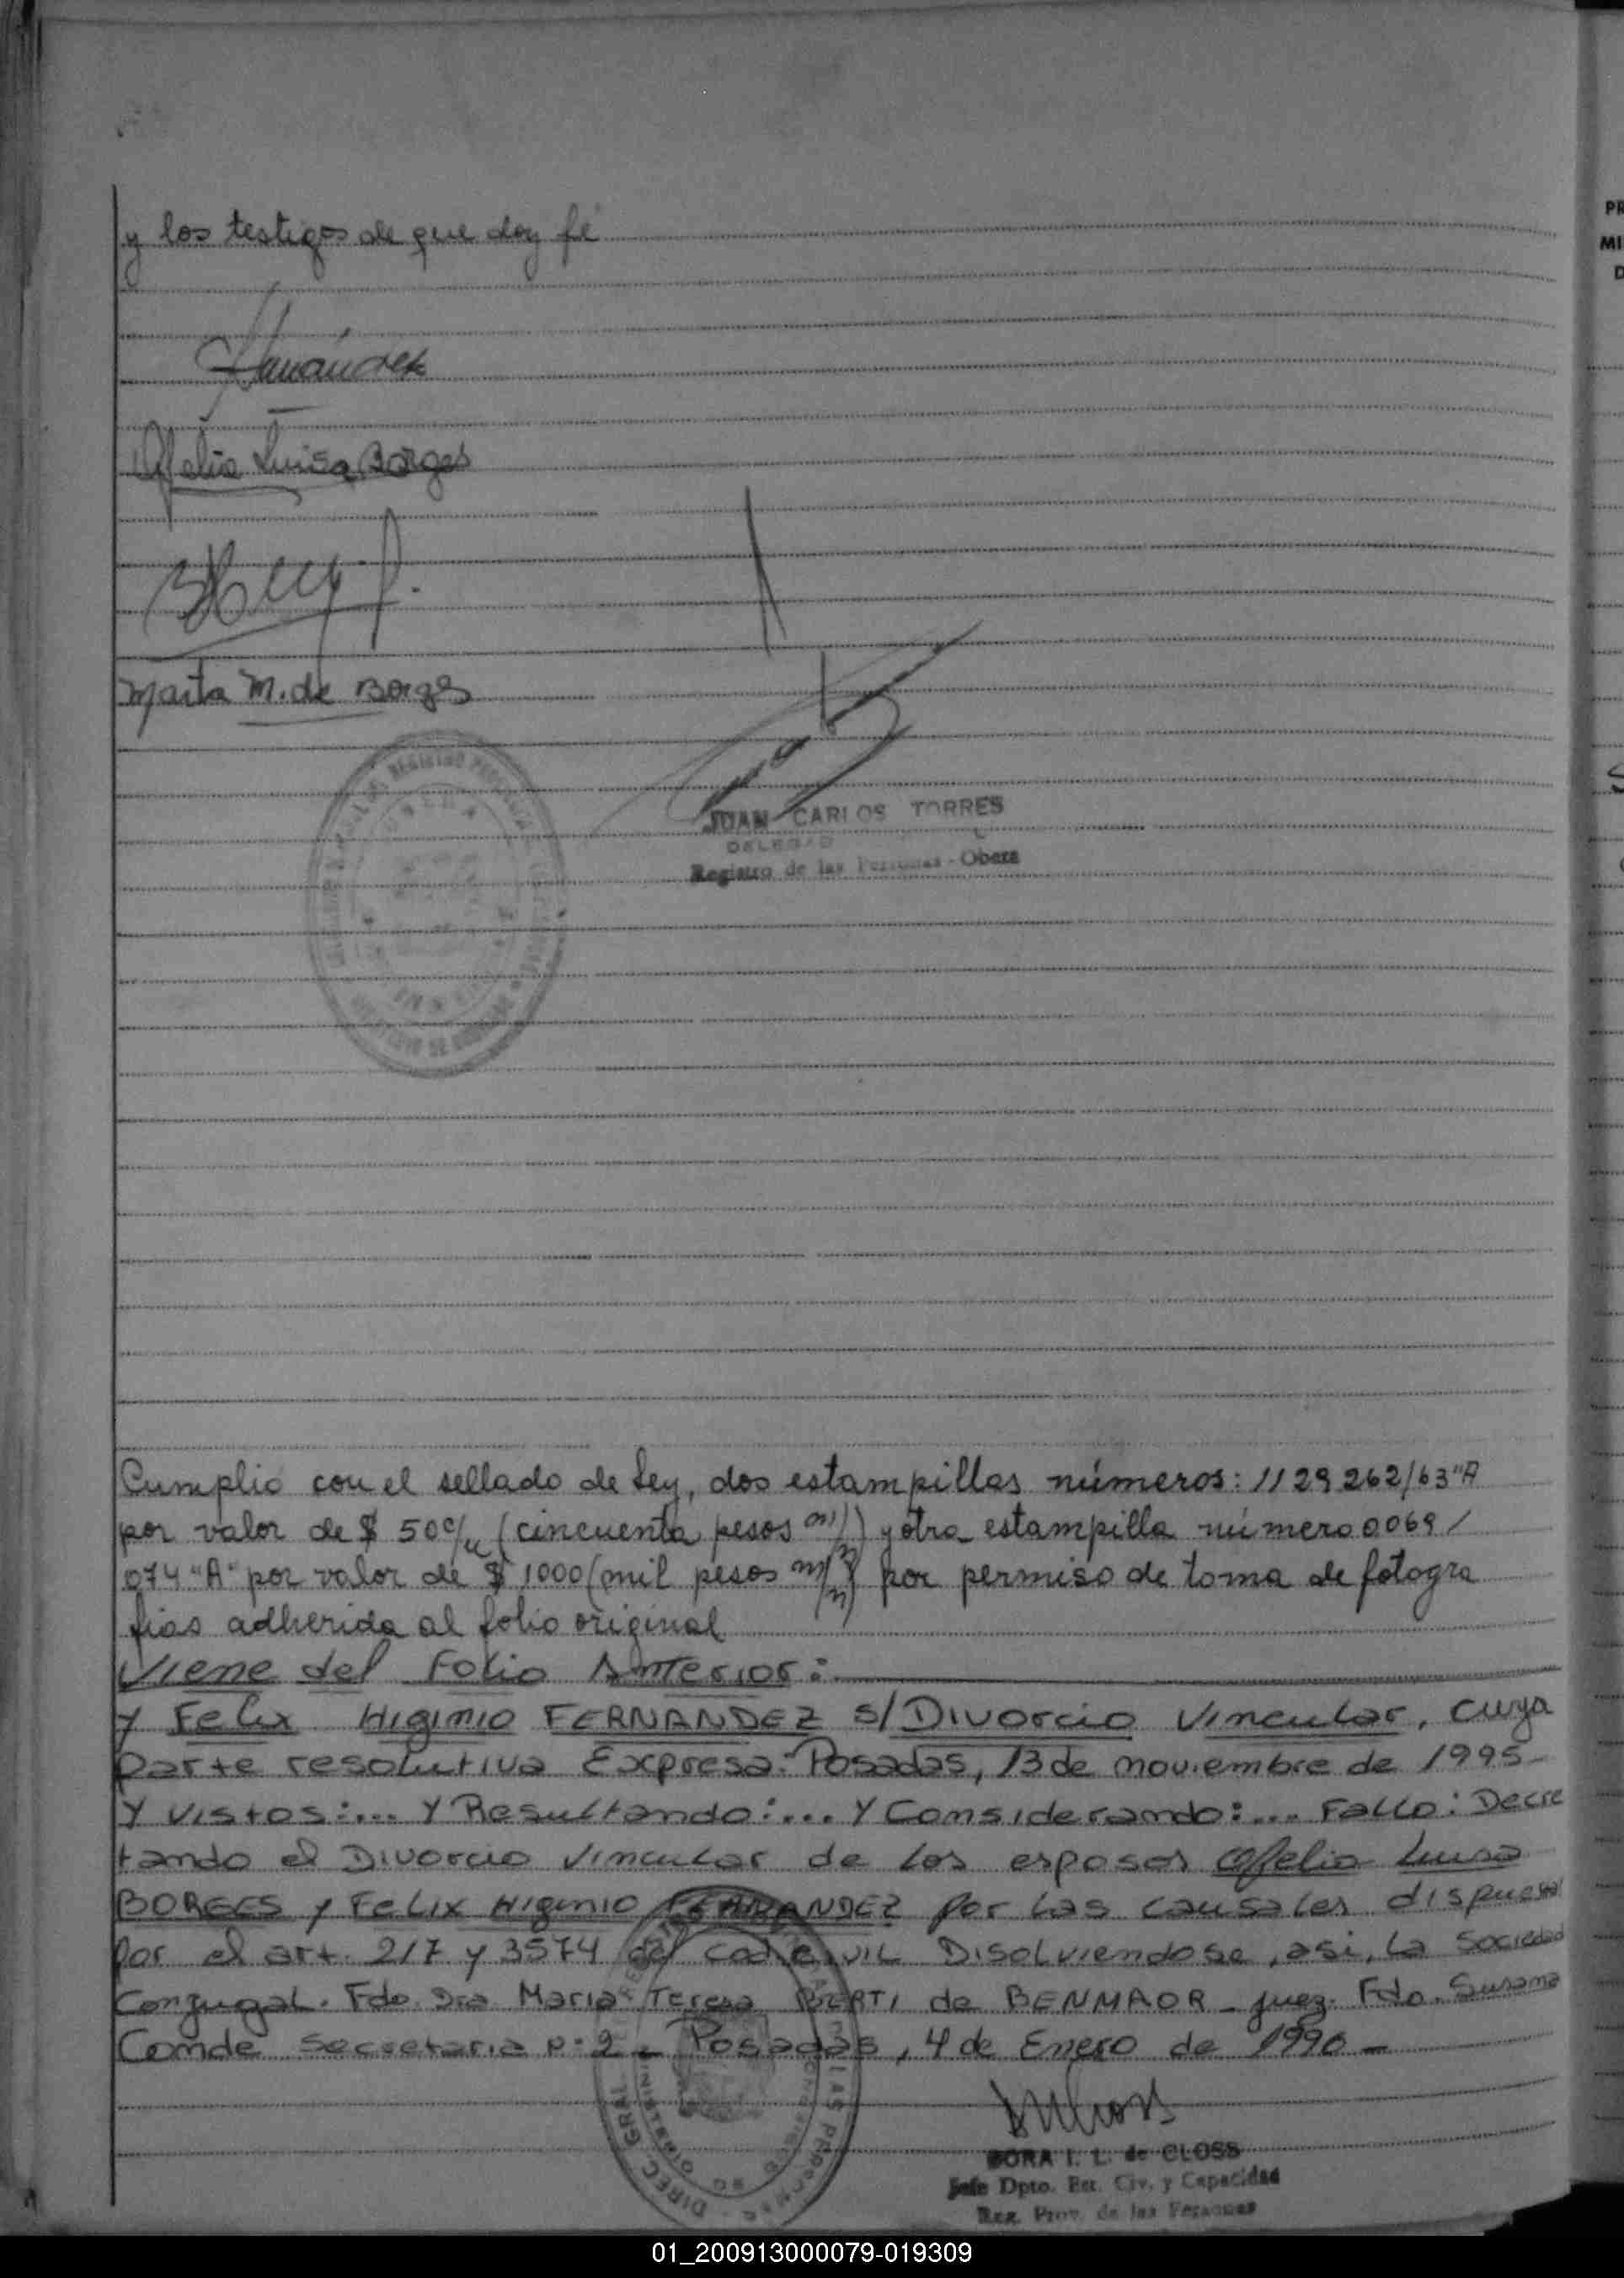 y los testigos de que doy fé
Ofelia Luisa Borges
Marta M. de Borges
JUAN CARLOS TORRES
DELEGADO
Registro de las Personas - Obera
Cumplió con el sellado de Ley, dos estampillas números: 1129262/63"A
por valor de $ 50 c/u (cincuenta pesos m/n) y otra estampilla número 0069/
074 "A" por valor de $ 1000 (mil pesos m/n) por permiso de toma de fotogra
fias adherida al folio original
Viene del Folio Anterior:
y Felix Higinio FERNANDEZ s/Divorcio Vincular, cuya
parte resolutiva Expresa: Posadas, 13 de noviembre de 1995-
Y Vistos:... Y Resultando:... Y Considerando:... Fallo: Decre
tando el Divorcio Vincular de los esposos Ofelia Luisa
BORGES y Felix Higinio FERNANDEZ por las causales dispuesta
por el art. 217 y 3574 del cod. civil Disolviendose, asi, la Sociedad
Conyugal. Fdo. Dra Maria Teresa de BENMAOR - juez. Fdo. Susana
Conde secretaria n: 2 - Posadas, 4 de Enero de 1996 -
DORA I. L. de CLOSS
Jefe Dpto. Est. Civ. y Capacidad
Reg. Prov. de las Personas
PR
MI
D
01_200913000079-019309